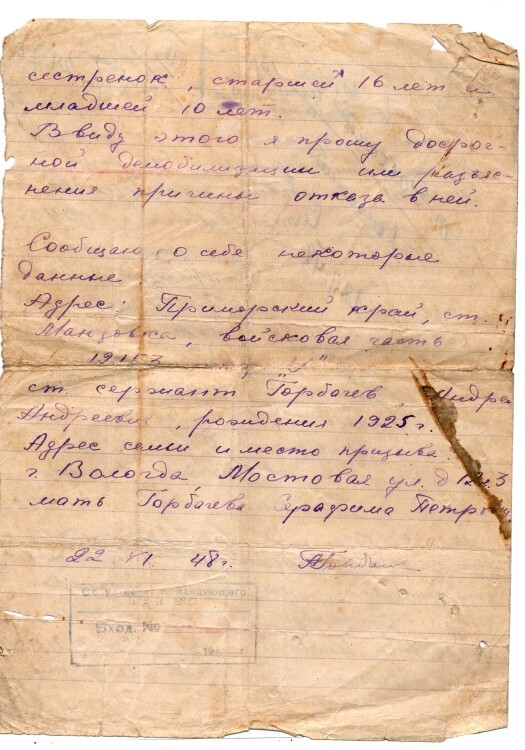 сестренок, старшей 16 лет и
младшей 10 лет.
Ввиду этого я прошу досроч-
ной демобилизации или разъяс-
нения причины отказа в ней.
Сообщаю о себе некоторые
данные
Адрес: Приморский край, ст.
Манзовка, войсковая часть
ст. сержант Горбачев Андрей
Андреевич, рождения 1925 г.
Адрес семьи и место призыва:
г. Вологда, Мостовая ул. д
мать Горбачева Серафима
22. VI. 48 г.
Командующего
Вход. №
194 г.